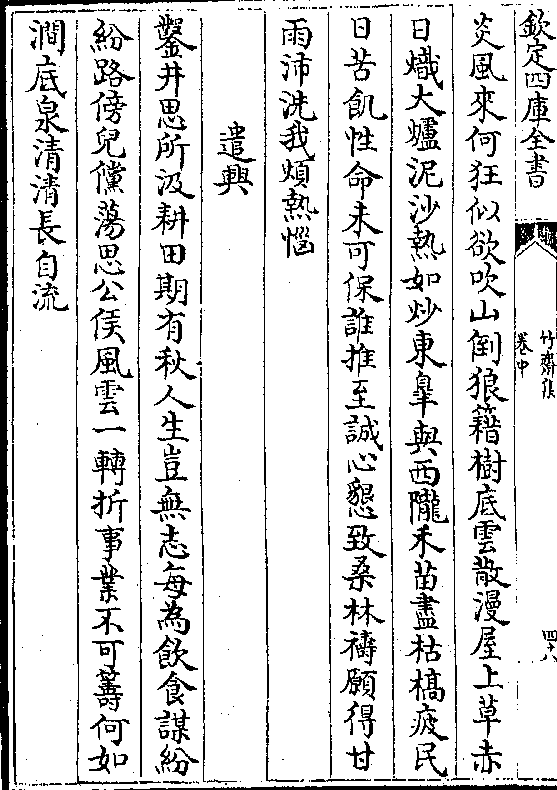 欽定四庫全書
竹齋集
卷中
四十八
炎風來何狂似欲吹山倒狼籍樹底雲散漫屋上草赤
日熾大爐泥沙熱如炒東皐與西隴禾苗盡枯槁疲民
日苦飢性命未可保誰推至誠心懇致桑林禱願得甘
雨沛洗我煩熱惱
遣興
鑿井思所汲耕田期有秋人生豈無志每為飲食謀紛
紛路傍兒儻蕩思公侯風雲一轉折事業不可籌何如
澗底泉清清長自流